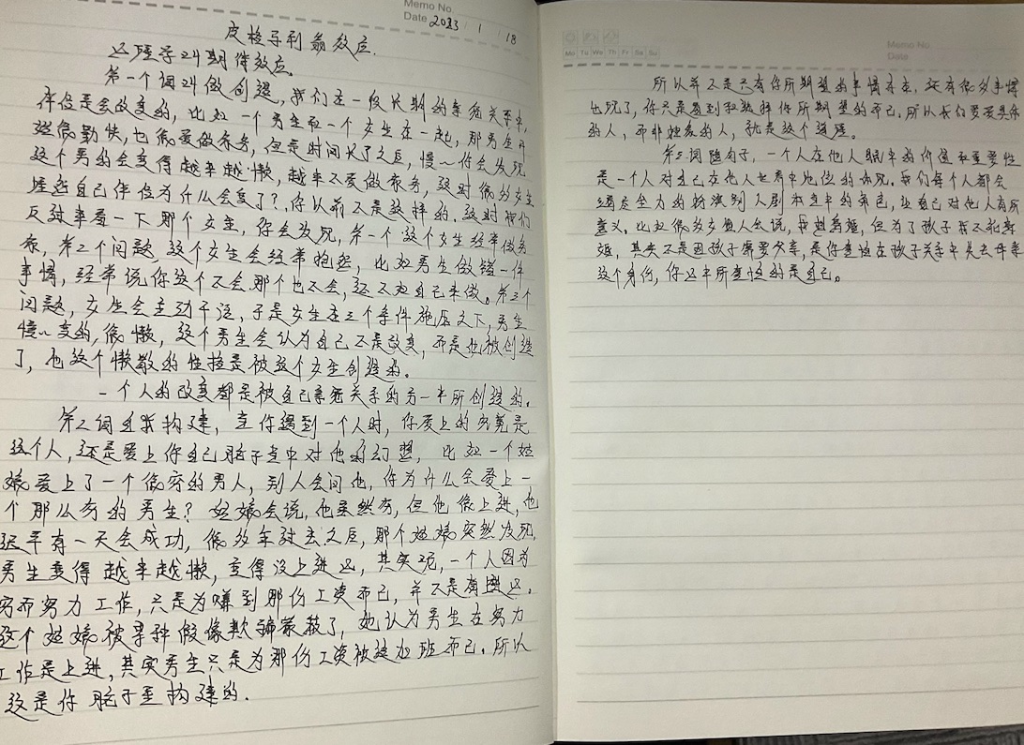 Memo No.
Date 2023 / 1 / 18
皮格马利翁效应.
这种子叫期待效应.
第一个词叫做创造, 我们在一段长期的亲密关系中,
伴侣是会改变的, 比如一个男生和一个女生在一起, 那男生开
始很勤快, 也很爱做家务, 但是时间长了之后, 慢慢你会发现
这个男的会变得越来越懒, 越来不爱做家务, 这时很多女生
自己伴侣为什么会变了? 你以前不是这样的. 这时我们
反过来看一下那个女生, 你会发现, 第一个这个女生经常做家
务, 第二个问题, 这个女生会经常抱怨, 比如男生做错一件
事情, 经常说你这个不会那个也不会, 还不如自己来做. 第三个
问题, 女生会主动干活, 于是女生在三个条件施压之下, 男生
慢慢变的, 很懒, 这个男生会认为自己不是改变, 而是他被创造
了, 他这个懒散的性格是被这个女生创造的.
一个人的改变都是被自己亲密关系的另一半所创造的.
第二词自我构建, 当你遇到一个人时, 你爱上的究竟是
这个人, 还是爱上你自己脑子当中对他的幻想, 比如一个姑
娘爱上了一个很穷的男人, 别人会问他, 你为什么会爱上一
个那么穷的男生? 姑娘会说, 他虽然穷, 但他很上进, 他
迟早有一天会成功, 很多年过去之后, 那个姑娘突然发现,
男生变得越来越懒, 变得没上进心, 其实呢, 一个人因为
穷而努力工作, 只是为赚到那份工资而已, 并不是有上进心.
这个姑娘被某种假像欺骗蒙蔽了, 她认为男生在努力
工作是上进, 其实男生只是为那份工资被迫加班而已. 所以
这是你脑子里构建的.
Memo No.
Date
Mo Tu We Th Fr Sa Su
所以并不是只有你所期望的事情存在, 还有很多事情
出现了, 你只是看到和选择你所期望的而已, 所以我们要爱具体
的人, 而非抽象的人, 就是这个道理.
第三词 一个人在他人眼中的价值和重要性
是一个人对自己在他人世界中地位的体现. 我们每个人都会
竭尽全力的扮演别人剧本当中的角色, 让自己对他人有所
意义. 比如很多女人会说, 我想离婚, 但为了孩子我不能离
婚, 其实不是因孩子需要父亲, 是你害怕在孩子关系中失去母亲
这个身份, 你这中所害怕的是自己.